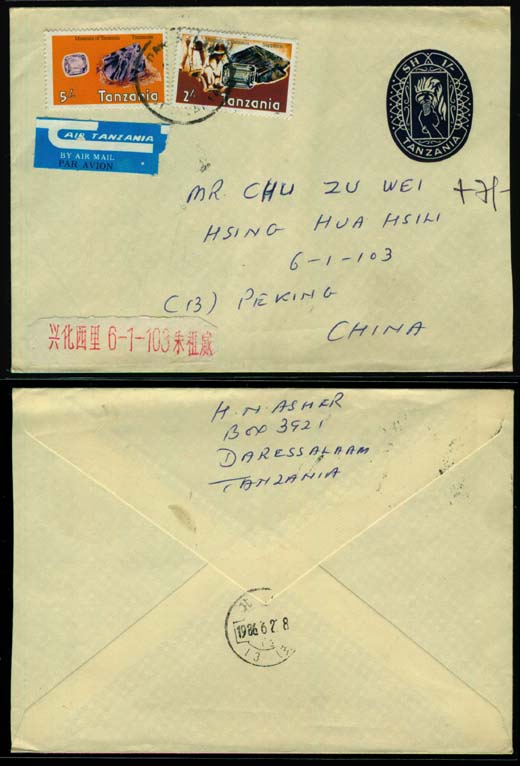 Minerals of Tanzania Tanzanite
5/-
Tanzania
2/-
Tanzania
SH 1/-
TANZANIA
AIR TANZANIA
BY AIR MAIL
PAR AVION
MR. CHU ZU WEI
HSING HUA HSILI
6-1-103
(13) PEKING
CHINA
兴化西里 6-1-103 朱祖威
H.N. ASHER
BOX 3921
DARESSALAAM
TANZANIA
1986.6.2 8